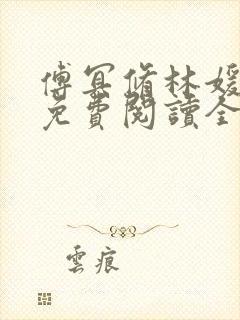 傅冥脩林媛
免費閱讀全
雲痕